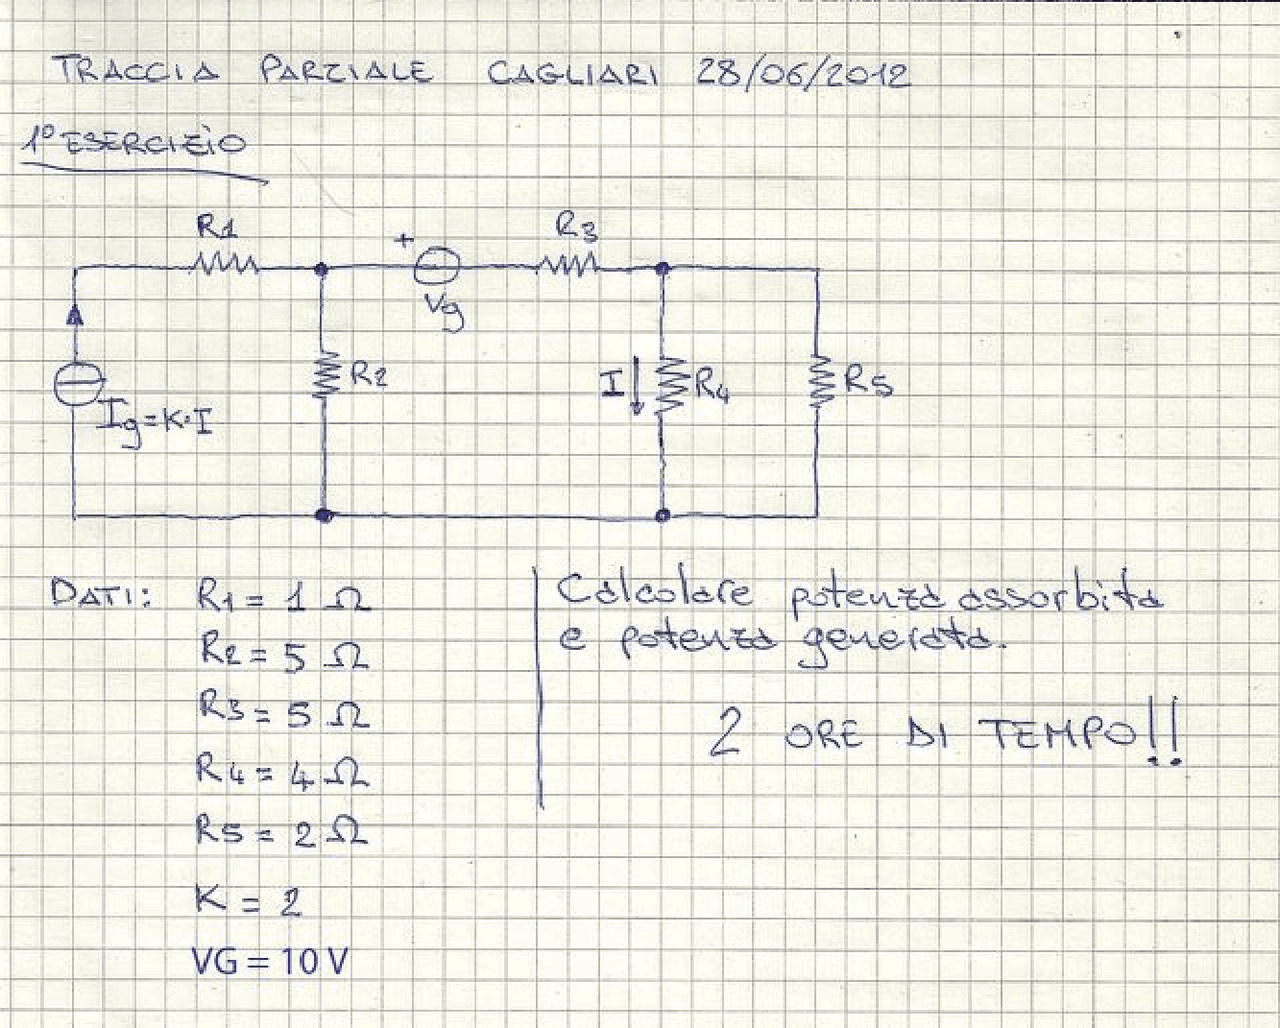 TRACCIA PARZIALE CAGLIARI 28/06/2012
1° ESERCIZIO
R1
+
R3
Vg
R2
I
R4
R5
Ig=K·I
DATI: R1 = 1 Ω
R2 = 5 Ω
R3 = 5 Ω
R4 = 4 Ω
R5 = 2 Ω
K = 2
VG = 10 V
Calcolare potenza assorbita
e potenza generata.
2 ORE DI TEMPO!!